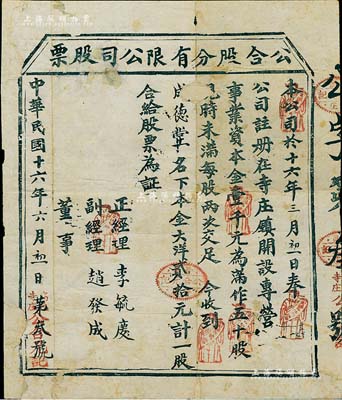 公合股分有限公司股票
本公司於十六年三月初一日奉
公司註册在寺庄鎮開設專營
事業資本金壹千元為滿作五十股
時未滿每股兩次交足 今收到
成德堂名下本金大洋貳拾元計一股
合給股票為証
正經理 李毓慶
副經理 趙發成
董事
中華民國十六年六月初一日 第叁號